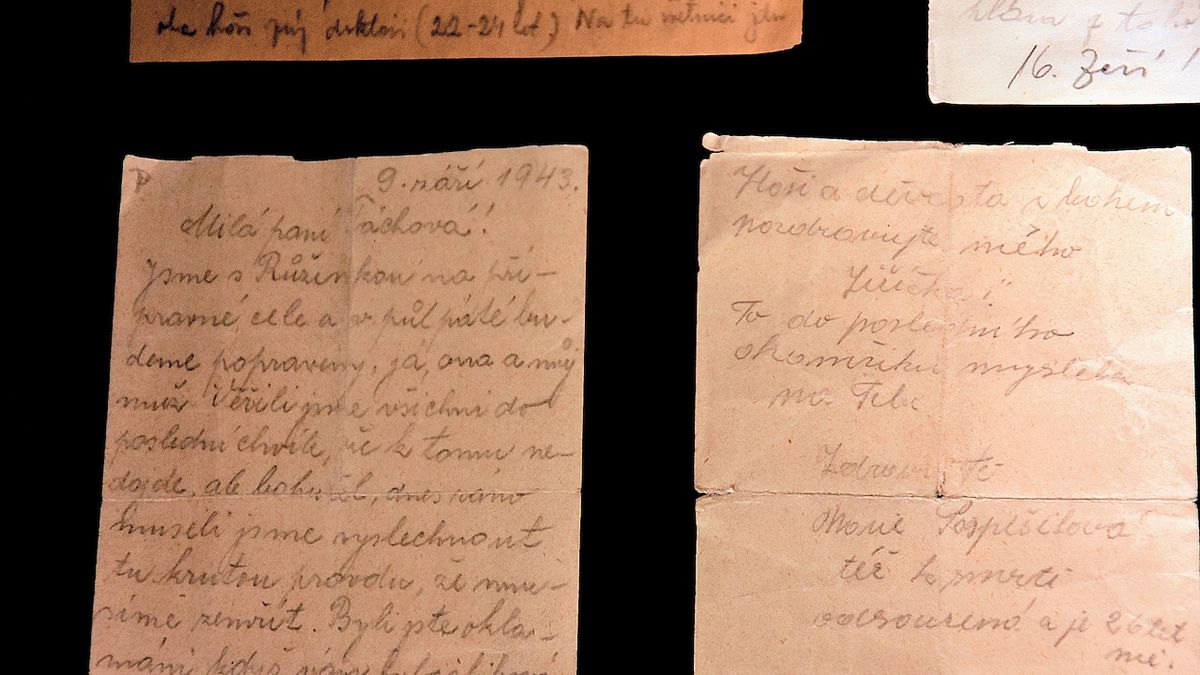 (22-24 let) Na tu
16. Září!
9. září 1943.
Milá paní Táchová!
Jsme s Růženkou na pří-
pravné cele a v půl páté bu-
deme popraveny, já, ona a můj
muž. Věřili jsme všichni do
poslední chvíle, že k tomu ne-
dojde, ale bohužel, dnes ráno
museli jsme vyslechnout
tu krutou pravdu, že mu-
síme zemřít. Byli jste okla-
máni, když
Hoši a děvčata s bohem
pozdravujte mého
Jiříčka!
To do posledního
okamžiku myslela
na Tebe
Zdraví Tě
Marie Pospíšilová
též k smrti
odsouzená a je 26 let
mi.